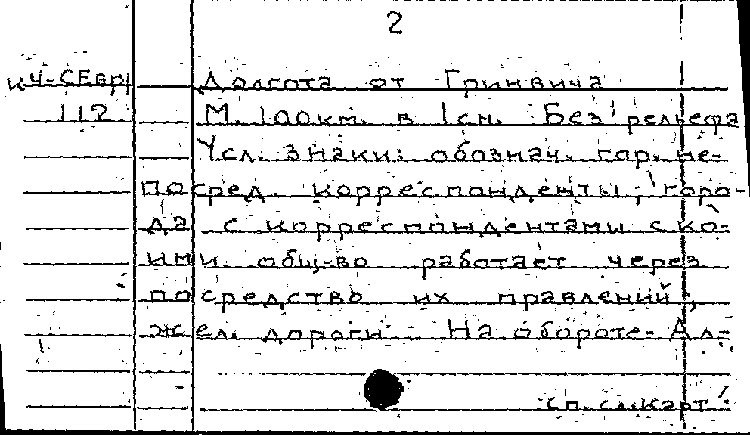 2
Долгота от Гринвича
112 М. 100км. в 1см. Без рельефа
Усл. знаки: обознач. гор. не-
посред. корреспонденты, горо-
да с корреспондентами с ко-
ими общ-во работает через
посредство их правлений,
жел. дороги. На обороте: Ал-
сп. сл. карт.